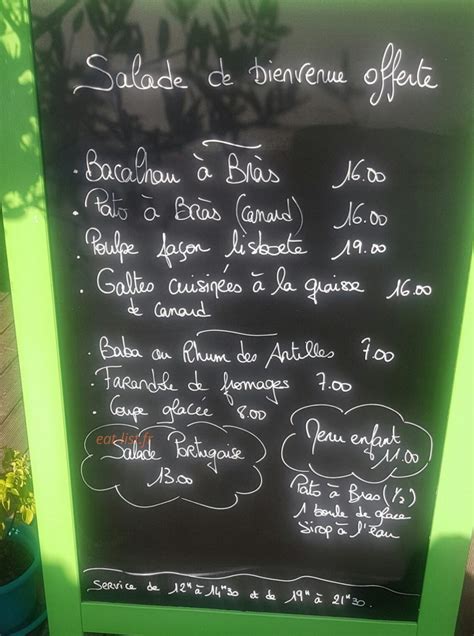 Salade de bienvenue offerte
. Bacalhau à Bràs 16.00
. Pato à Bràs (canard) 16.00
. Poulpe façon lisboete 19.00
. Galtes cuisinées à la graisse 16.00
de canard
. Baba au Rhum des Antilles 7.00
. Farandole de fromages 7.00
. Coupe glacée 8.00
eat-list.fr
Salade Portugaise
13.00
Menu enfant
11.00
Pato à Bras (1/2)
1 boule de glace
Sirop à l'eau
Service de 12H à 14H30 et de 19H à 21H30.